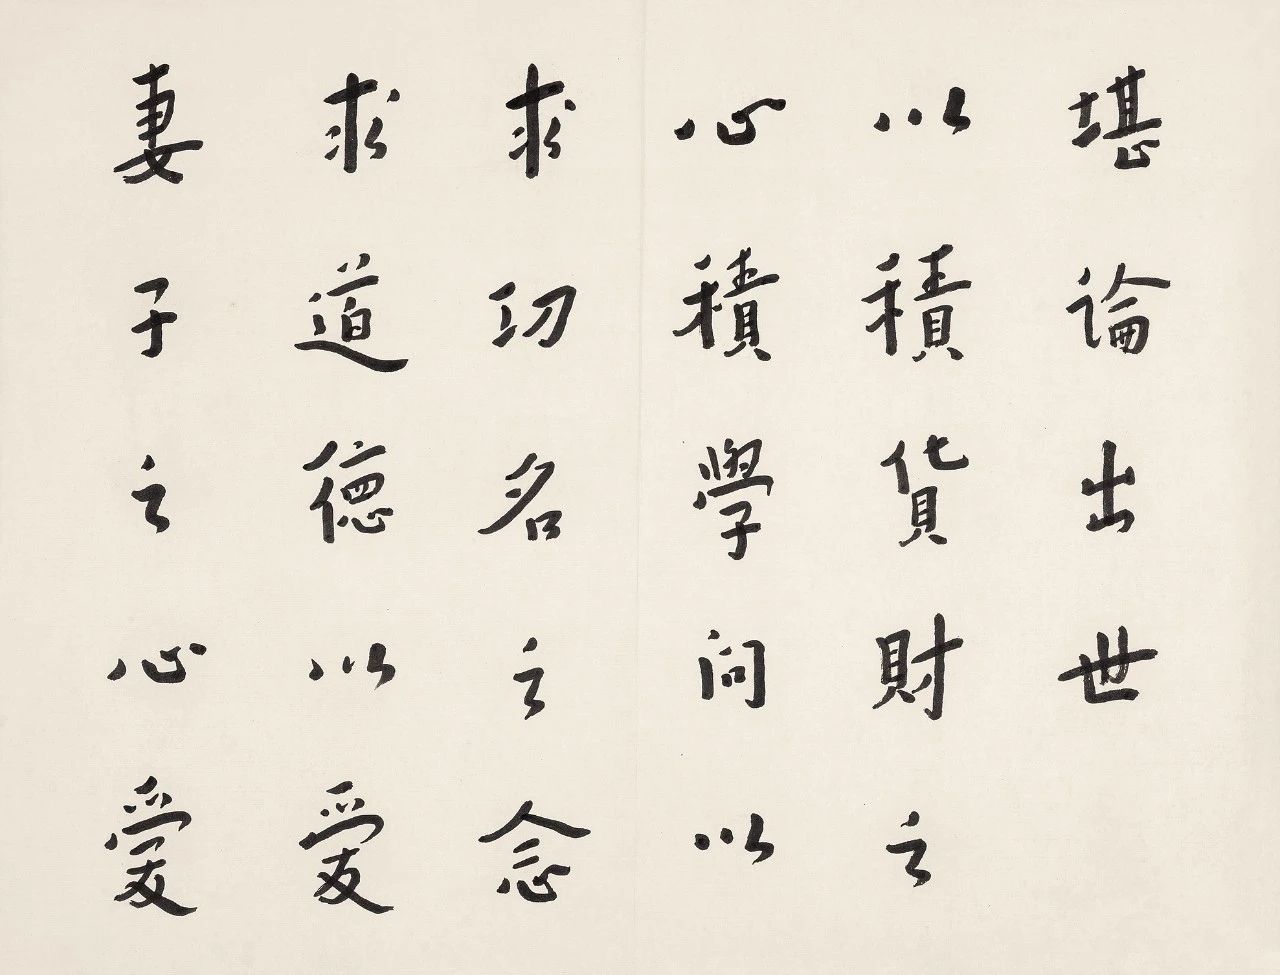 堪論出世
以積貨財之
心積學問以
求功名之念
求道德以愛
妻子之心愛